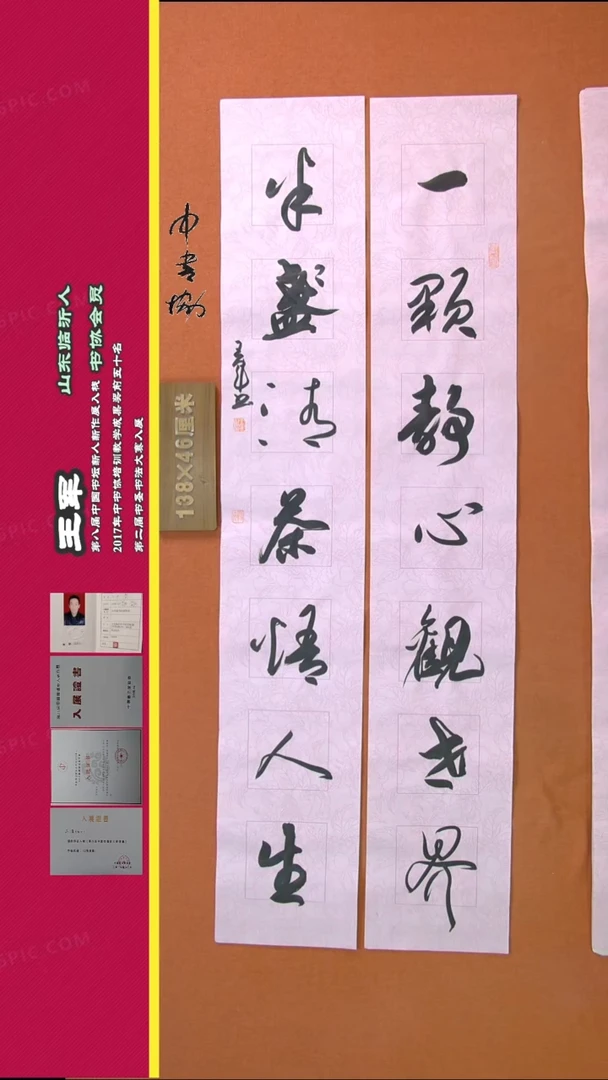 一颗静心观世界
半盏清茶悟人生
王军书
中书协
138×46厘米
王军
山东临沂人
书协会员
第八届中国书坛新人新作展入展
2017年中书协培训教学成果奖前五十名
第二届书圣书法大赛入展
入展证书